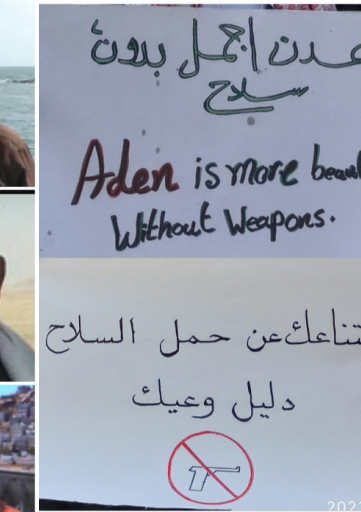 عدن اجمل بدون
سلاح
Aden is more
Without Weapons.
عن حمل السلاح
دليل وعيك